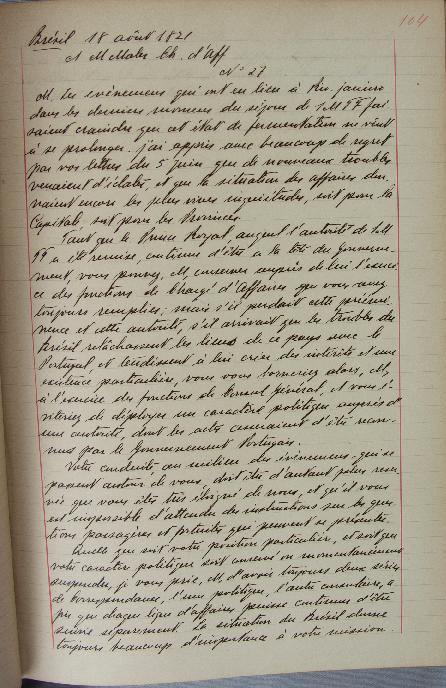 104
Brésil 18 août 1821
A M Maler Ch. d'Aff
N° 27
M. Les evénemens qui ont eu lieu à Rio janeiro
dans les derniers momens du séjour de S M T F fai
saient craindre que cet état de fermentation ne vint
à se prolonger. j'ai appris avec beaucoup de regret
par vos lettres du 5 juin que de nouveaux troubles
venaient d'éclater, et que la situation des affaires don
naient encore les plus vives inquiétudes, soit pour la
Capitale, soit pour les Provinces.
Tant que le Prince Royal auquel l'autorité de S M
T F a été remise, continue d'être a la tête du Gouverne-
ment, vous pouvez, M, conserver auprès de lui l'exerci
ce des fonctions de Chargé d'Affaires que vous avez
toujours remplies; mais s'il perdait cette préémi-
nence et cette autorité, s'il arrivait que les troubles du
Brésil relâchassent les liens de ce pays avec le
Portugal, et tendissent à lui créer des intérêts et une
existence particulière, vous vous borneriez alors, M,
à l'exercice des fonctions de Consul Général, et vous é-
viteriez de déployer un caractère politique auprès d'
une autorité, dont les actes cesseraient d'être recon-
nus par le Gouvernement Portugais.
Votre conduite au milieu des évènemens qui se
passent autour de vous, doit être d'autant plus reser
vée que vous êtes très éloigné de nous, et qu'il vous
est impossible d'attendre des instructions sur les ques
tions passagères et fortuites qui peuvent se présenter.
Quelle que soit votre position particulière, et soit que
votre caractère politique soit conservé ou momentanément
suspendu, je vous prie, M, d'avoir toujours deux séries
de Correspondance, l'une politique, l'autre consulaire, a
fin que chaque ligne d'affaires puisse continuer d'être
suivie séparement. La situation du Brésil donne
toujours beaucoup d'importance à votre mission